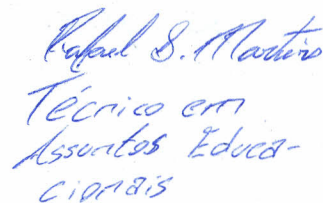 Rafael S. Martins
Técnico em
Assuntos Educa-
cionais